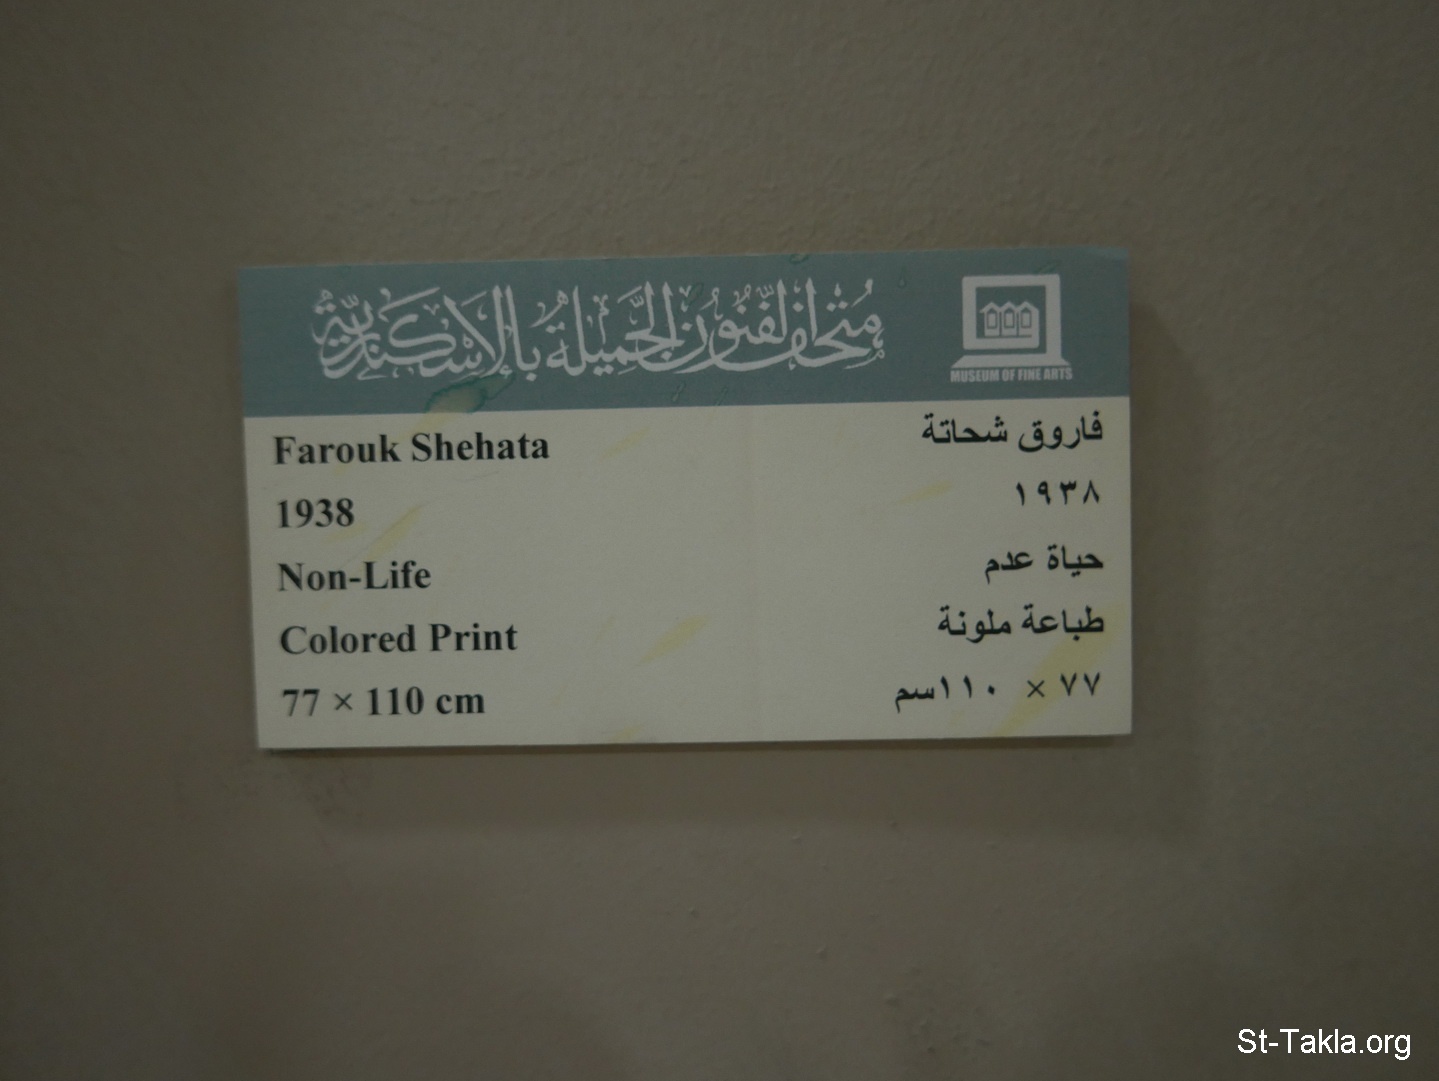 متحف الفنون الجميلة بالإسكندرية
MUSEUM OF FINE ARTS
Farouk Shehata
1938
Non-Life
Colored Print
77 × 110 cm
فاروق شحاتة
١٩٣٨
حياة عدم
طباعة ملونة
٧٧ × ١١٠سم
St-Takla.org